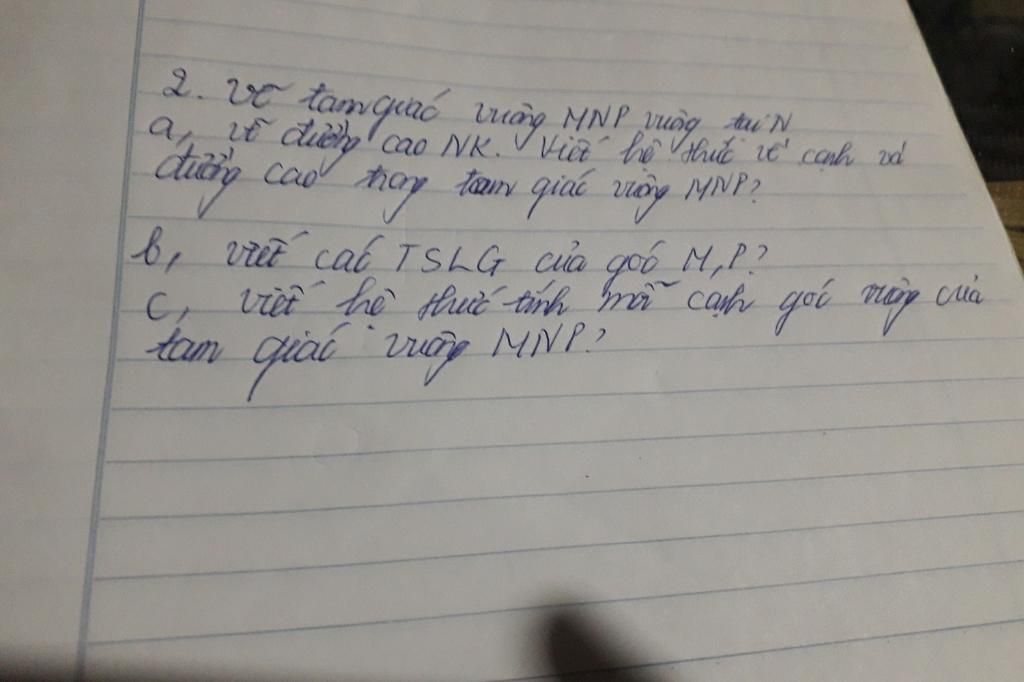 2. Vẽ tam giác vuông MNP vuông tại N
a, vẽ đường cao NK. Viết hệ thức về cạnh và
đường cao trong tam giác vuông MNP?
b, viết các TSLG của góc M, P?
c, viết hệ thức tính mỗi cạnh góc vuông của
tam giác vuông MNP?